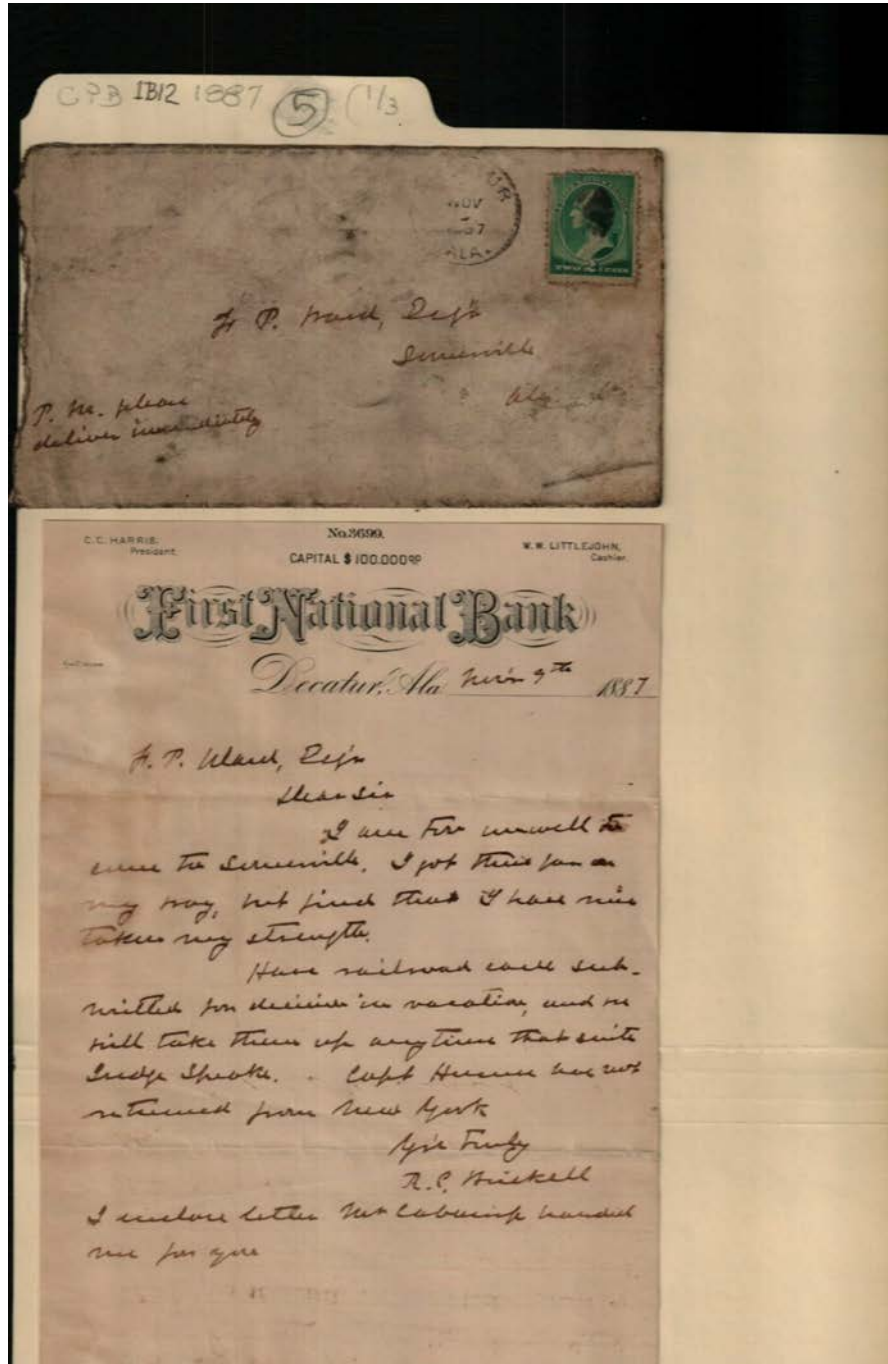 CPB IB12 1887 (5) (1/3
UR
NOV
ALA.
TWO CENTS
F. P. Ward, Esq'r
Somerville
Ala
P. M. please
deliver immediately
C. C. HARRIS, President.
No. 3699.
CAPITAL $100.000.00
W. W. LITTLEJOHN, Cashier.
First National Bank
Decatur, Ala Nov'r 9th 1887
F. P. Ward, Esq'r
Dear Sir
I am too unwell to
come to Somerville. I got this far on
my way, but find that I have
taken my strength.
Have railroad case sub-
mitted for decision in vacation, and we
will take them up any time that suits
Judge Speake. Capt Humes has not
returned from New York
Yrs Truly
R. C. Brickell
I enclose letter Mr handed
me for you